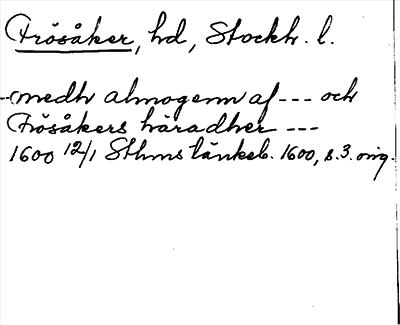 Frösåker, hd, Stockh. l.
--- medh almogenn af --- och
Frösåkers häradher ---
1600 12/1 Sthms tänkeb. 1600, s. 3. orig.